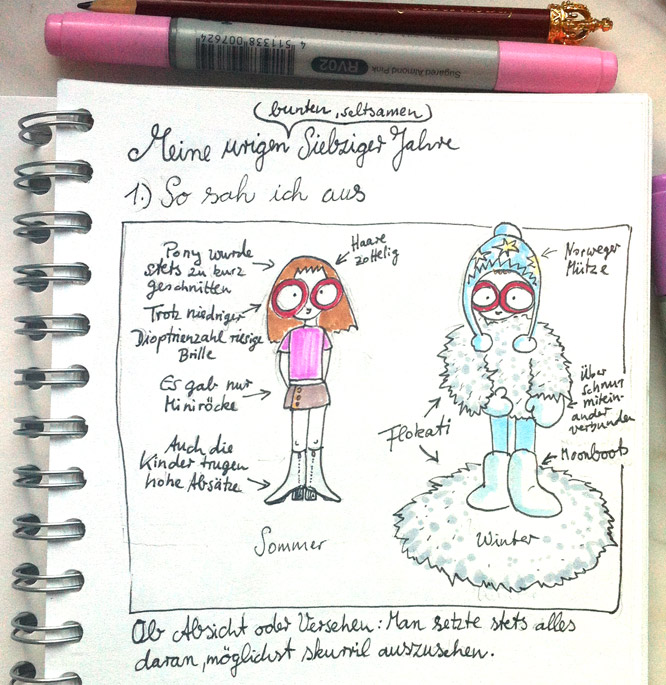 4 511338 007624
RV02
Sugared Almond Pink
(bunten, seltsamen)
Meine urigen Siebziger Jahre
1.) So sah ich aus
Pony wurde
stets zu kurz
geschnitten
Haare
zottelig
Trotz niedriger
Dioptrienzahl riesige
Brille
Es gab nur
Miniröcke
Auch die
Kinder trugen
hohe Absätze
Sommer
Norweger
Mütze
Über
schnur
mitein-
ander
verbunden
Flokati
Moonboots
Winter
Ob Absicht oder Versehen: Man setzte stets alles
daran, möglichst skurril auszusehen.